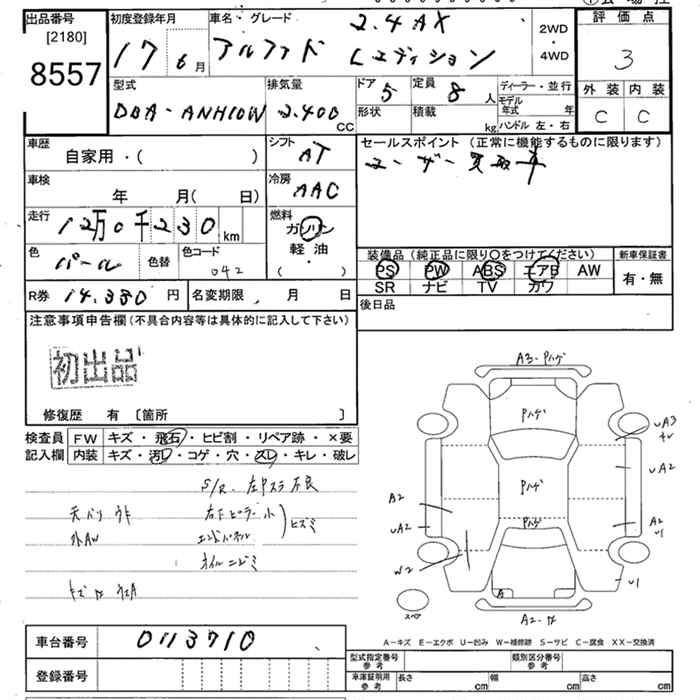 出品番号
[2180]
8557
初度登録年月
17 6月
車名・グレード
2.4AX
アルファード Lエディション
2WD
・
4WD
評価点
3
外装 内装
C C
型式
DBA-ANH10W
排気量
2.400
CC
ドア 5
形状
定員 8 人
積載 kg
ディーラー・並行
モデル年式 年
ハンドル 左・右
車歴
自家用・( )
シフト
AT
セールスポイント (正常に機能するものに限ります)
ユーザー買取車
車検
年 月( 日)
冷房
AAC
走行
12万0千230 km
燃料
ガソリン
軽油
・
( )
色
パール
色替
色コード
042
装備品 (純正品に限り○をつけてください)
PS PW ABS エアB AW
SR ナビ TV カワ
新車保証書
有・無
R券 14.380 円
名変期限 月 日
後日品
注意事項申告欄(不具合内容等は具体的に記入して下さい)
初出品
修復歴 有 〔箇所 〕
検査員
記入欄
FW キズ・飛石・ヒビ割・リペア跡・×要
内装 キズ・汚レ・コゲ・穴・スレ・キレ・破レ
S/R. 左Pスラ不良
天バリ ウキ
右下ピラー小
ヒズミ
外AW
エンドパネル
オイルニジミ
A3・Pハゲ
Pハゲ
UA3
Pハゲ
UA2
A2
Pハゲ
A2
UA2
U1
W2
U1
A
スペア
A2
A-キズ E-エクボ U-凹み W-補修跡 S-サビ C-腐食 XX-交換済
車台番号
0113710
登録番号
型式指定番号
参考
類別区分番号
参考
車庫証明用
参考
長さ cm
幅 cm
高さ cm